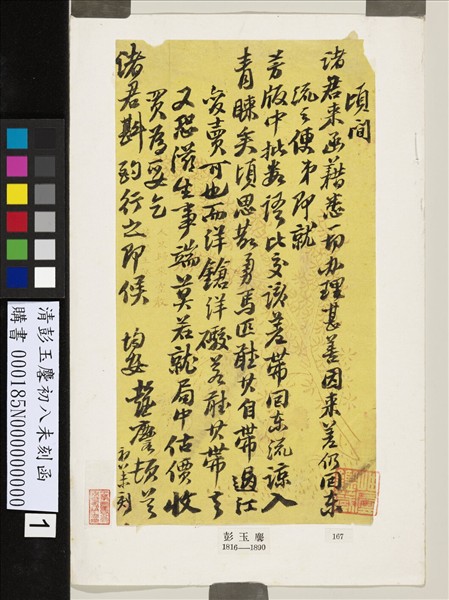 頃間
諸君來函藉悉一切办理甚善因來差仍回东
流之便弟即就
芳版中批數語比交該差帶回东流諒入
青睞矣頃思散勇馬匹聽其自帶過江
變賣可也而洋鎗洋礮若聽其帶去
又恐滋生事端莫若就局中估價收
買為妥乞
諸君斟酌行之即候 均安 麐頓首
初八未刻
彭玉麐
1816—1890
167
清彭玉麐初八未刻函
購書 000185N000000000
1